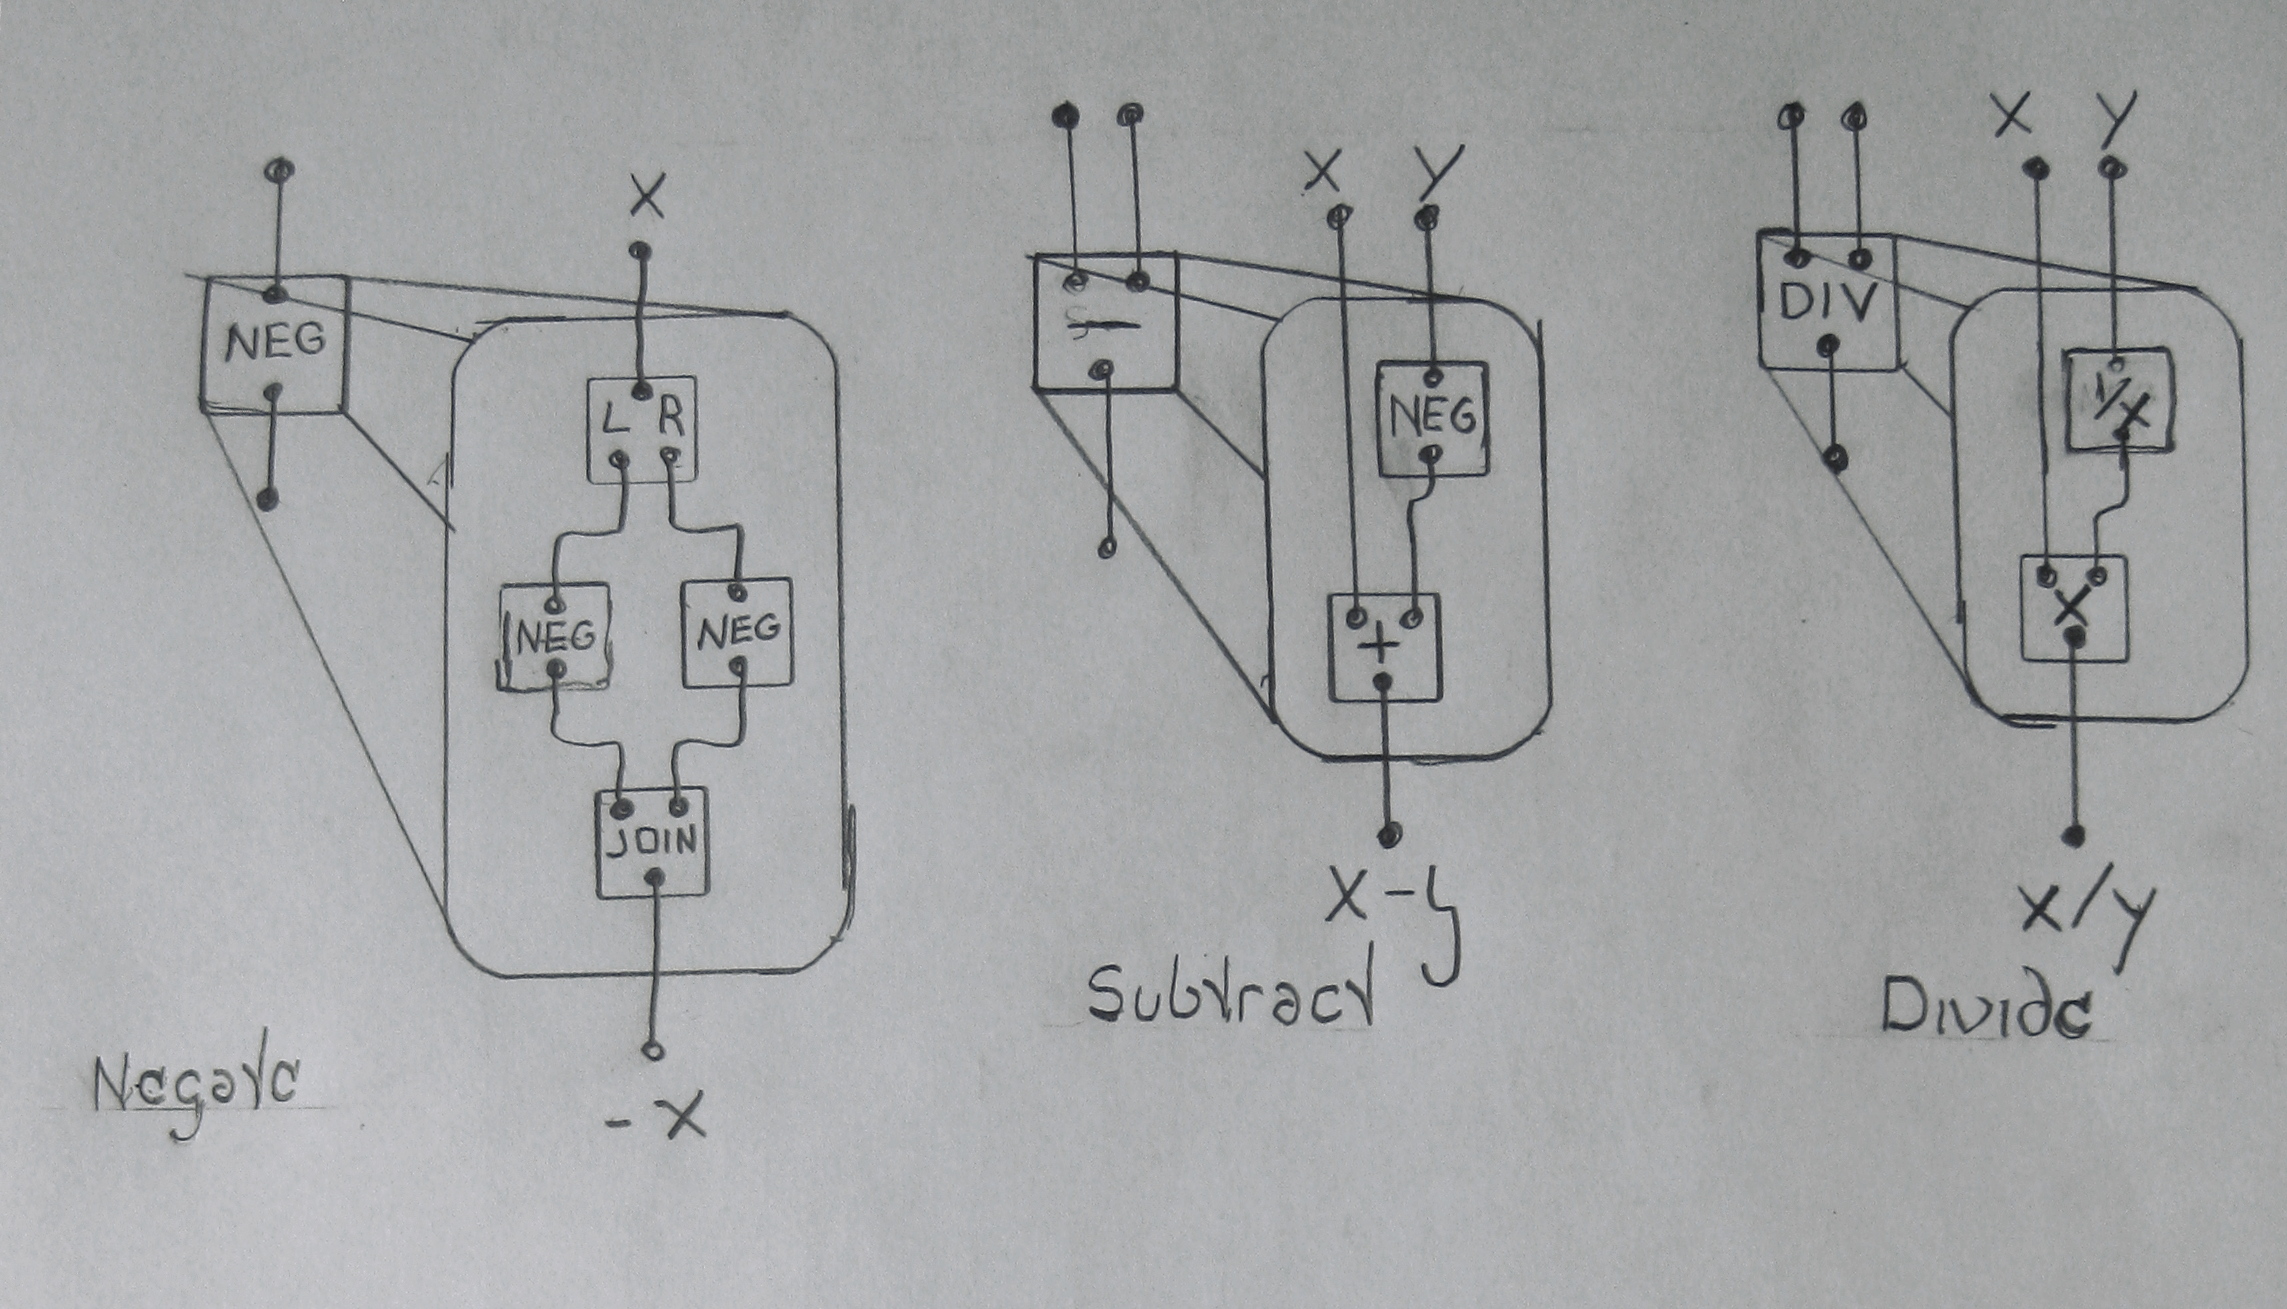 NEG
X
L R
NEG NEG
JOIN
-X
Negate
-
X Y
NEG
+
X-y
Subtract
DIV
X Y
1/X
X
X/y
Divide